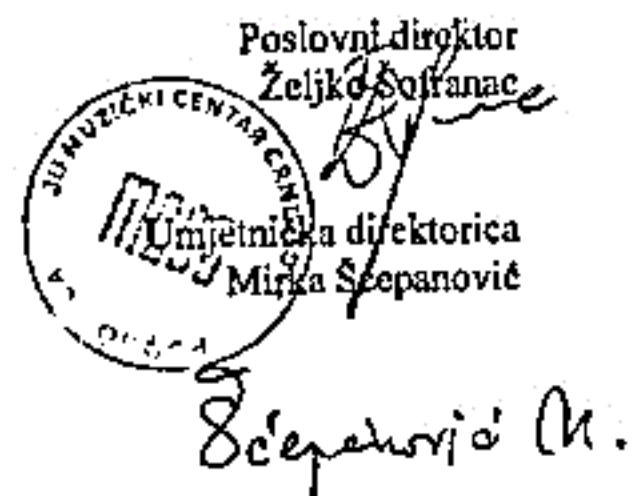 Poslovni direktor
Željko Šofranac
JU MUZIČKI CENTAR CRNE
Umjetnička direktorica
Mirka Šćepanović
Šćepanović M.